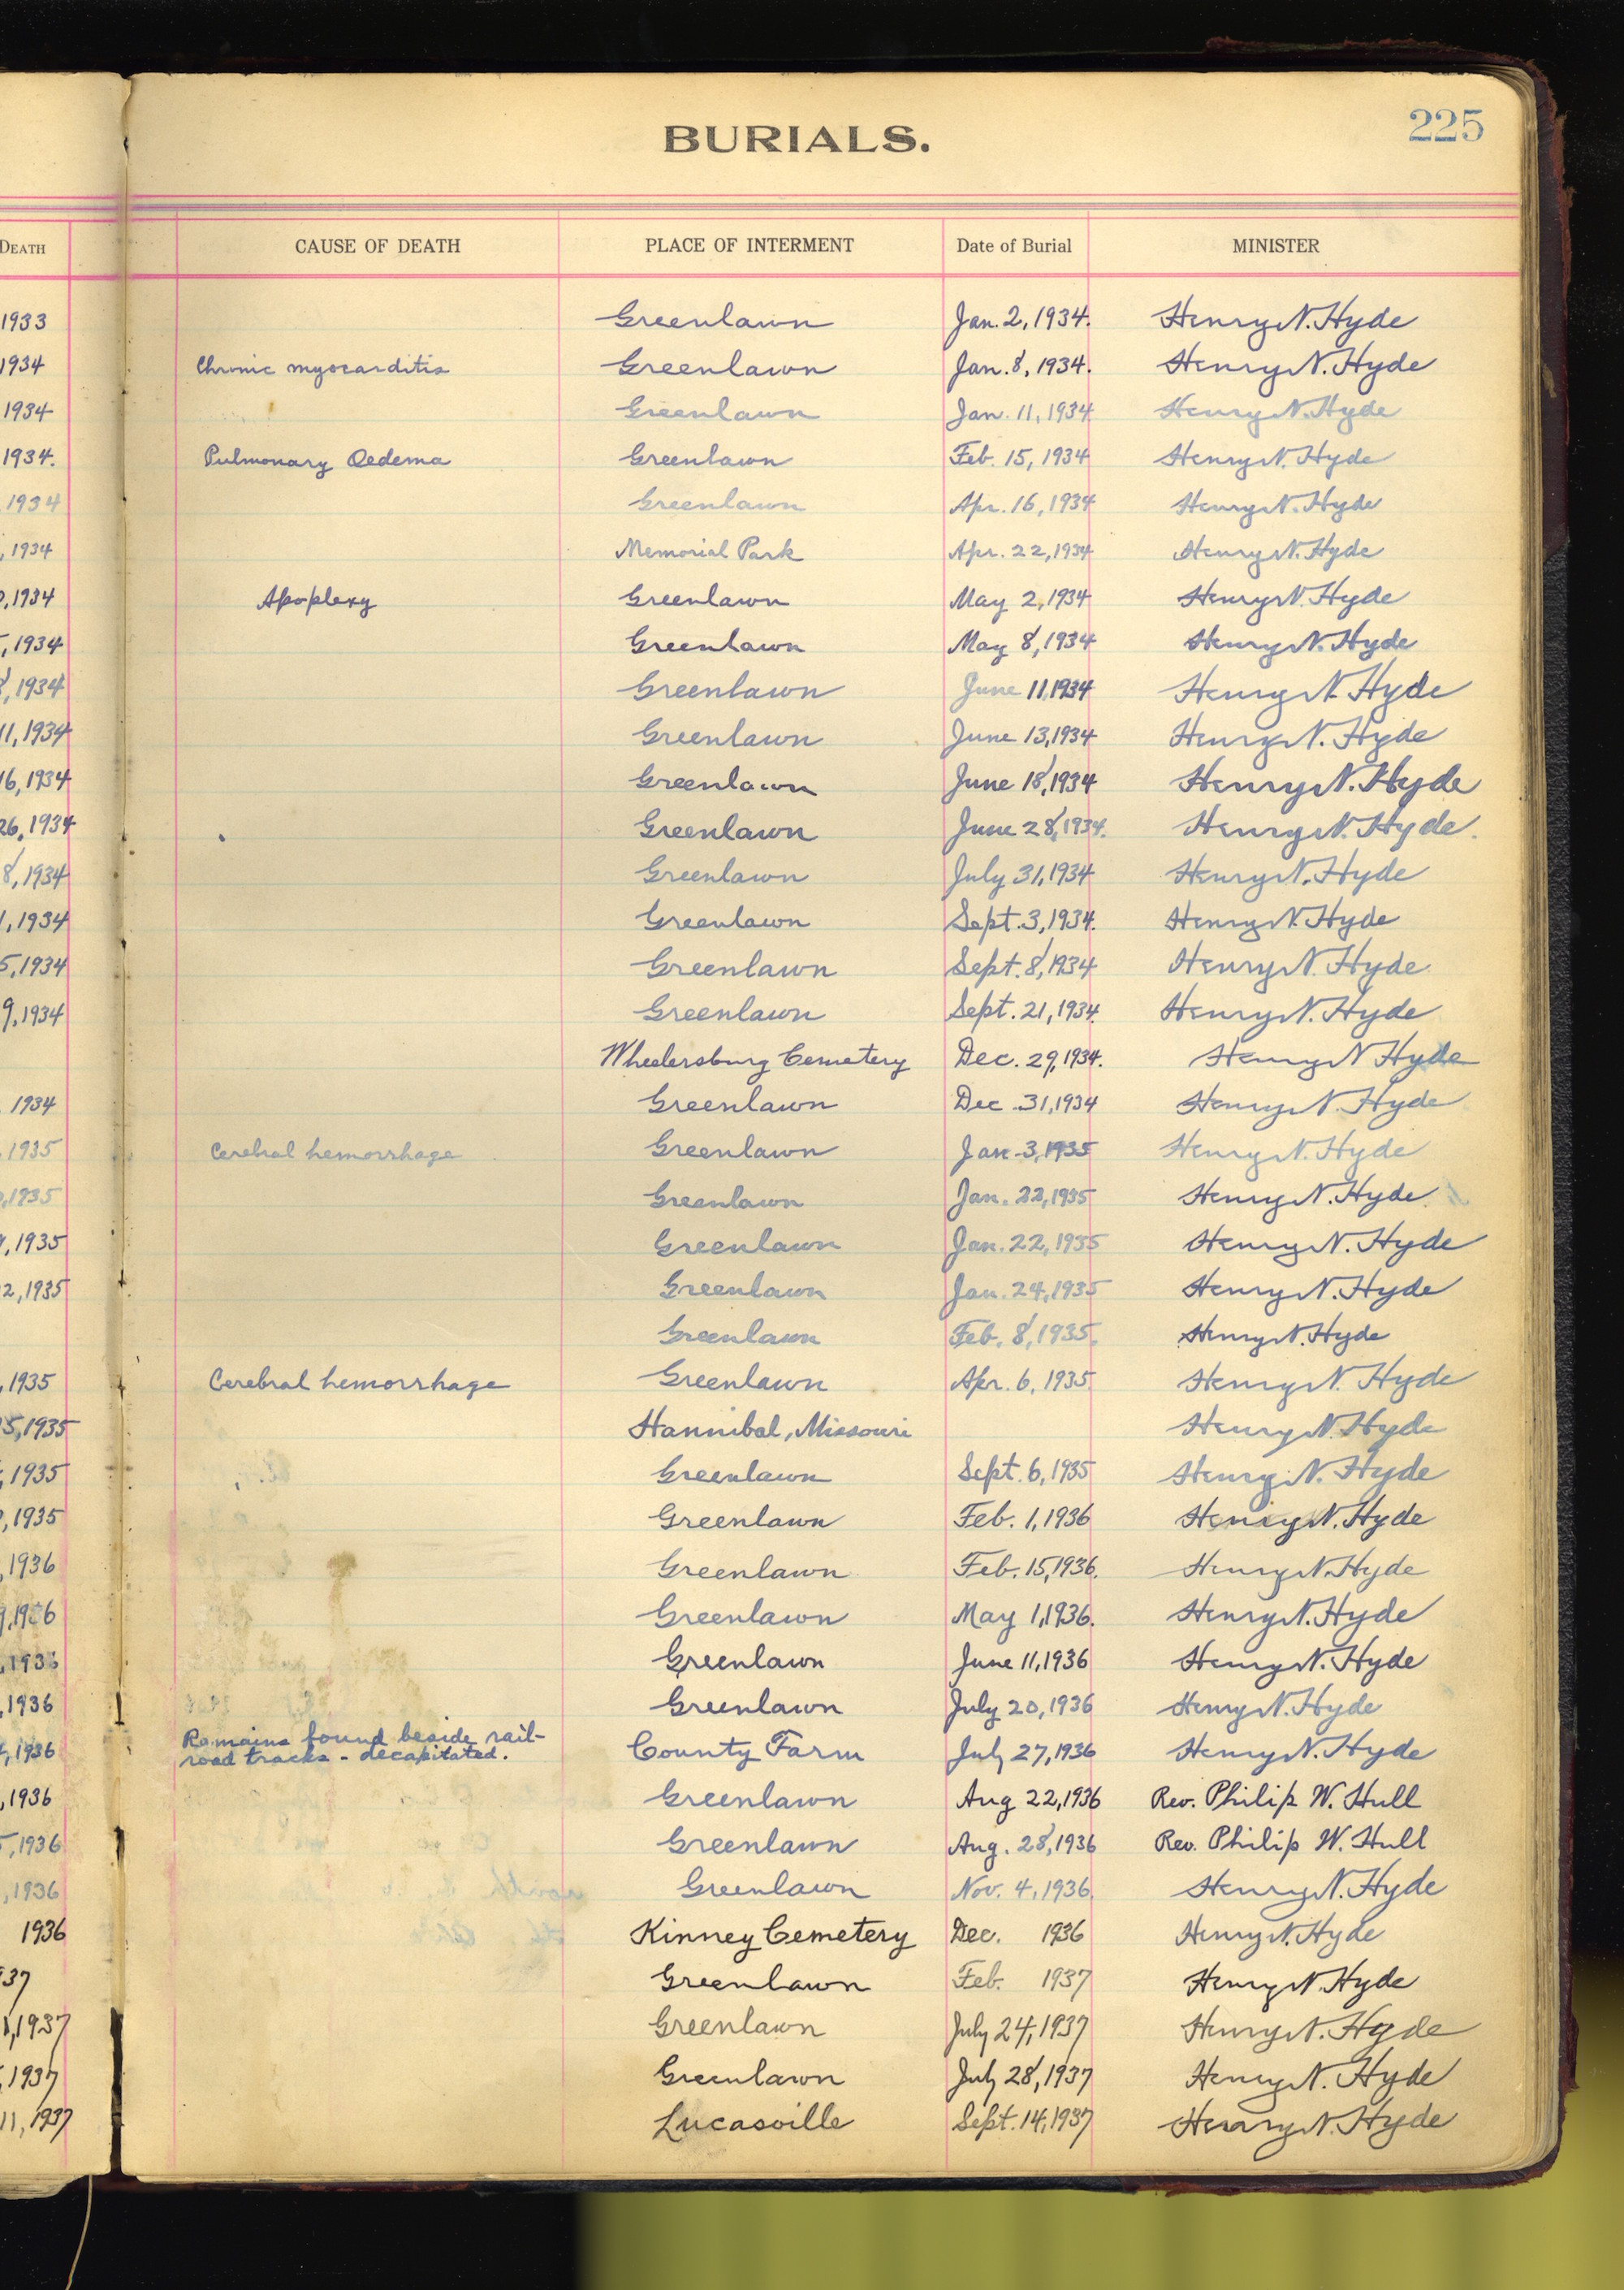 BURIALS.
225
DEATH CAUSE OF DEATH PLACE OF INTERMENT Date of Burial MINISTER
1933 Greenlawn Jan. 2, 1934. Henry N. Hyde
1934 Chronic myocarditis Greenlawn Jan. 8, 1934. Henry N. Hyde
1934 Greenlawn Jan. 11, 1934 Henry N. Hyde
1934. Pulmonary Oedema Greenlawn Feb. 15, 1934 Henry N. Hyde
1934 Greenlawn Apr. 16, 1934 Henry N. Hyde
, 1934 Memorial Park Apr. 22, 1934 Henry N. Hyde
, 1934 Apoplexy Greenlawn May 2, 1934 Henry N. Hyde
, 1934 Greenlawn May 8, 1934 Henry N. Hyde
, 1934 Greenlawn June 11, 1934 Henry N. Hyde
11, 1934 Greenlawn June 13, 1934 Henry N. Hyde
16, 1934 Greenlawn June 18, 1934 Henry N. Hyde
26, 1934 Greenlawn June 28, 1934. Henry N. Hyde.
8, 1934 Greenlawn July 31, 1934 Henry N. Hyde
1, 1934 Greenlawn Sept. 3, 1934. Henry N. Hyde
5, 1934 Greenlawn Sept. 8, 1934 Henry N. Hyde
9, 1934 Greenlawn Sept. 21, 1934. Henry N. Hyde
Wheelersburg Cemetery Dec. 29, 1934. Henry N Hyde
1934 Greenlawn Dec. 31, 1934 Henry N. Hyde
1935 Cerebral hemorrhage Greenlawn Jan. 3, 1935 Henry N. Hyde
, 1935 Greenlawn Jan. 22, 1935 Henry N. Hyde
, 1935 Greenlawn Jan. 22, 1935 Henry N. Hyde
2, 1935 Greenlawn Jan. 24, 1935 Henry N. Hyde
Greenlawn Feb. 8, 1935. Henry N. Hyde
, 1935 Cerebral hemorrhage Greenlawn Apr. 6, 1935. Henry N. Hyde
5, 1935 Hannibal, Missouri Henry N. Hyde
, 1935 Greenlawn Sept. 6, 1935 Henry N. Hyde
, 1935 Greenlawn Feb. 1, 1936 Henry N. Hyde
, 1936 Greenlawn Feb. 15, 1936. Henry N. Hyde
, 1936 Greenlawn May 1, 1936. Henry N. Hyde
, 1936 Greenlawn June 11, 1936 Henry N. Hyde
, 1936 Greenlawn July 20, 1936 Henry N. Hyde
Remains found beside rail-
, 1936 road tracks - decapitated. County Farm July 27, 1936 Henry N. Hyde
, 1936 Greenlawn Aug 22, 1936 Rev. Philip W. Hull
5, 1936 Greenlawn Aug. 28, 1936 Rev. Philip W. Hull
, 1936 Greenlawn Nov. 4, 1936. Henry N. Hyde
1936 Kinney Cemetery Dec. 1936 Henry N. Hyde
37 Greenlawn Feb. 1937 Henry N. Hyde
, 1937 Greenlawn July 24, 1937 Henry N. Hyde
, 1937 Greenlawn July 28, 1937 Henry N. Hyde
11, 1937 Lucasville Sept. 14, 1937 Henry N. Hyde